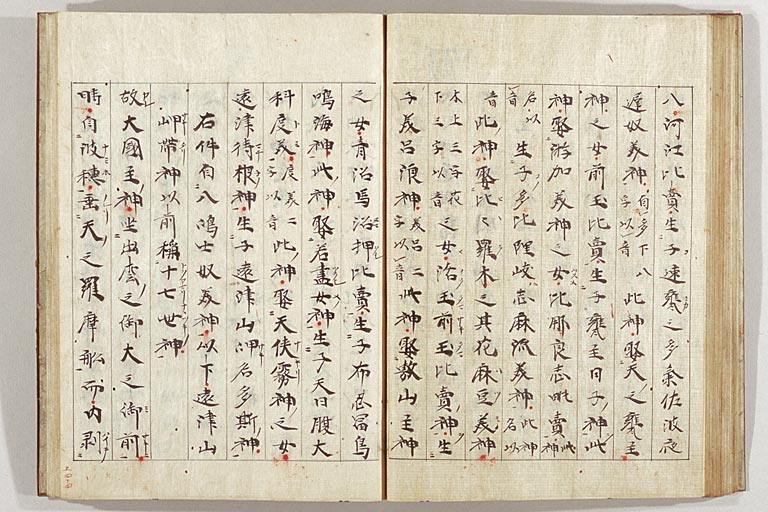 八河江比賣生子速甕之多氣佐波夜
遅奴美神自多下八字以音此神娶天之甕主
神之女前玉比賣生子甕主日子神此
神娶淤加美神之女比那良志毗賣此神
名以音生子多比理岐志麻流美神此神名以
音此神娶比々羅木之其花麻豆美神
木上三字花下三字以音之女活玉前玉比賣神生
子美呂浪神美呂二字以音此神娶敷山主神
之女青沼馬沼押比賣生子布忍冨鳥
鳴海神此神娶若盡女神生子天日腹大
科度美神度美二字以音此神娶天狭霧神之女
遠津待根神生子遠津山岬名多斯神
右件自八嶋士奴美神以下遠津山
岬帶神以前稱十七世神
故大國主神坐出雲之御大之御前
時自波穗乗天之羅摩舩而内剥